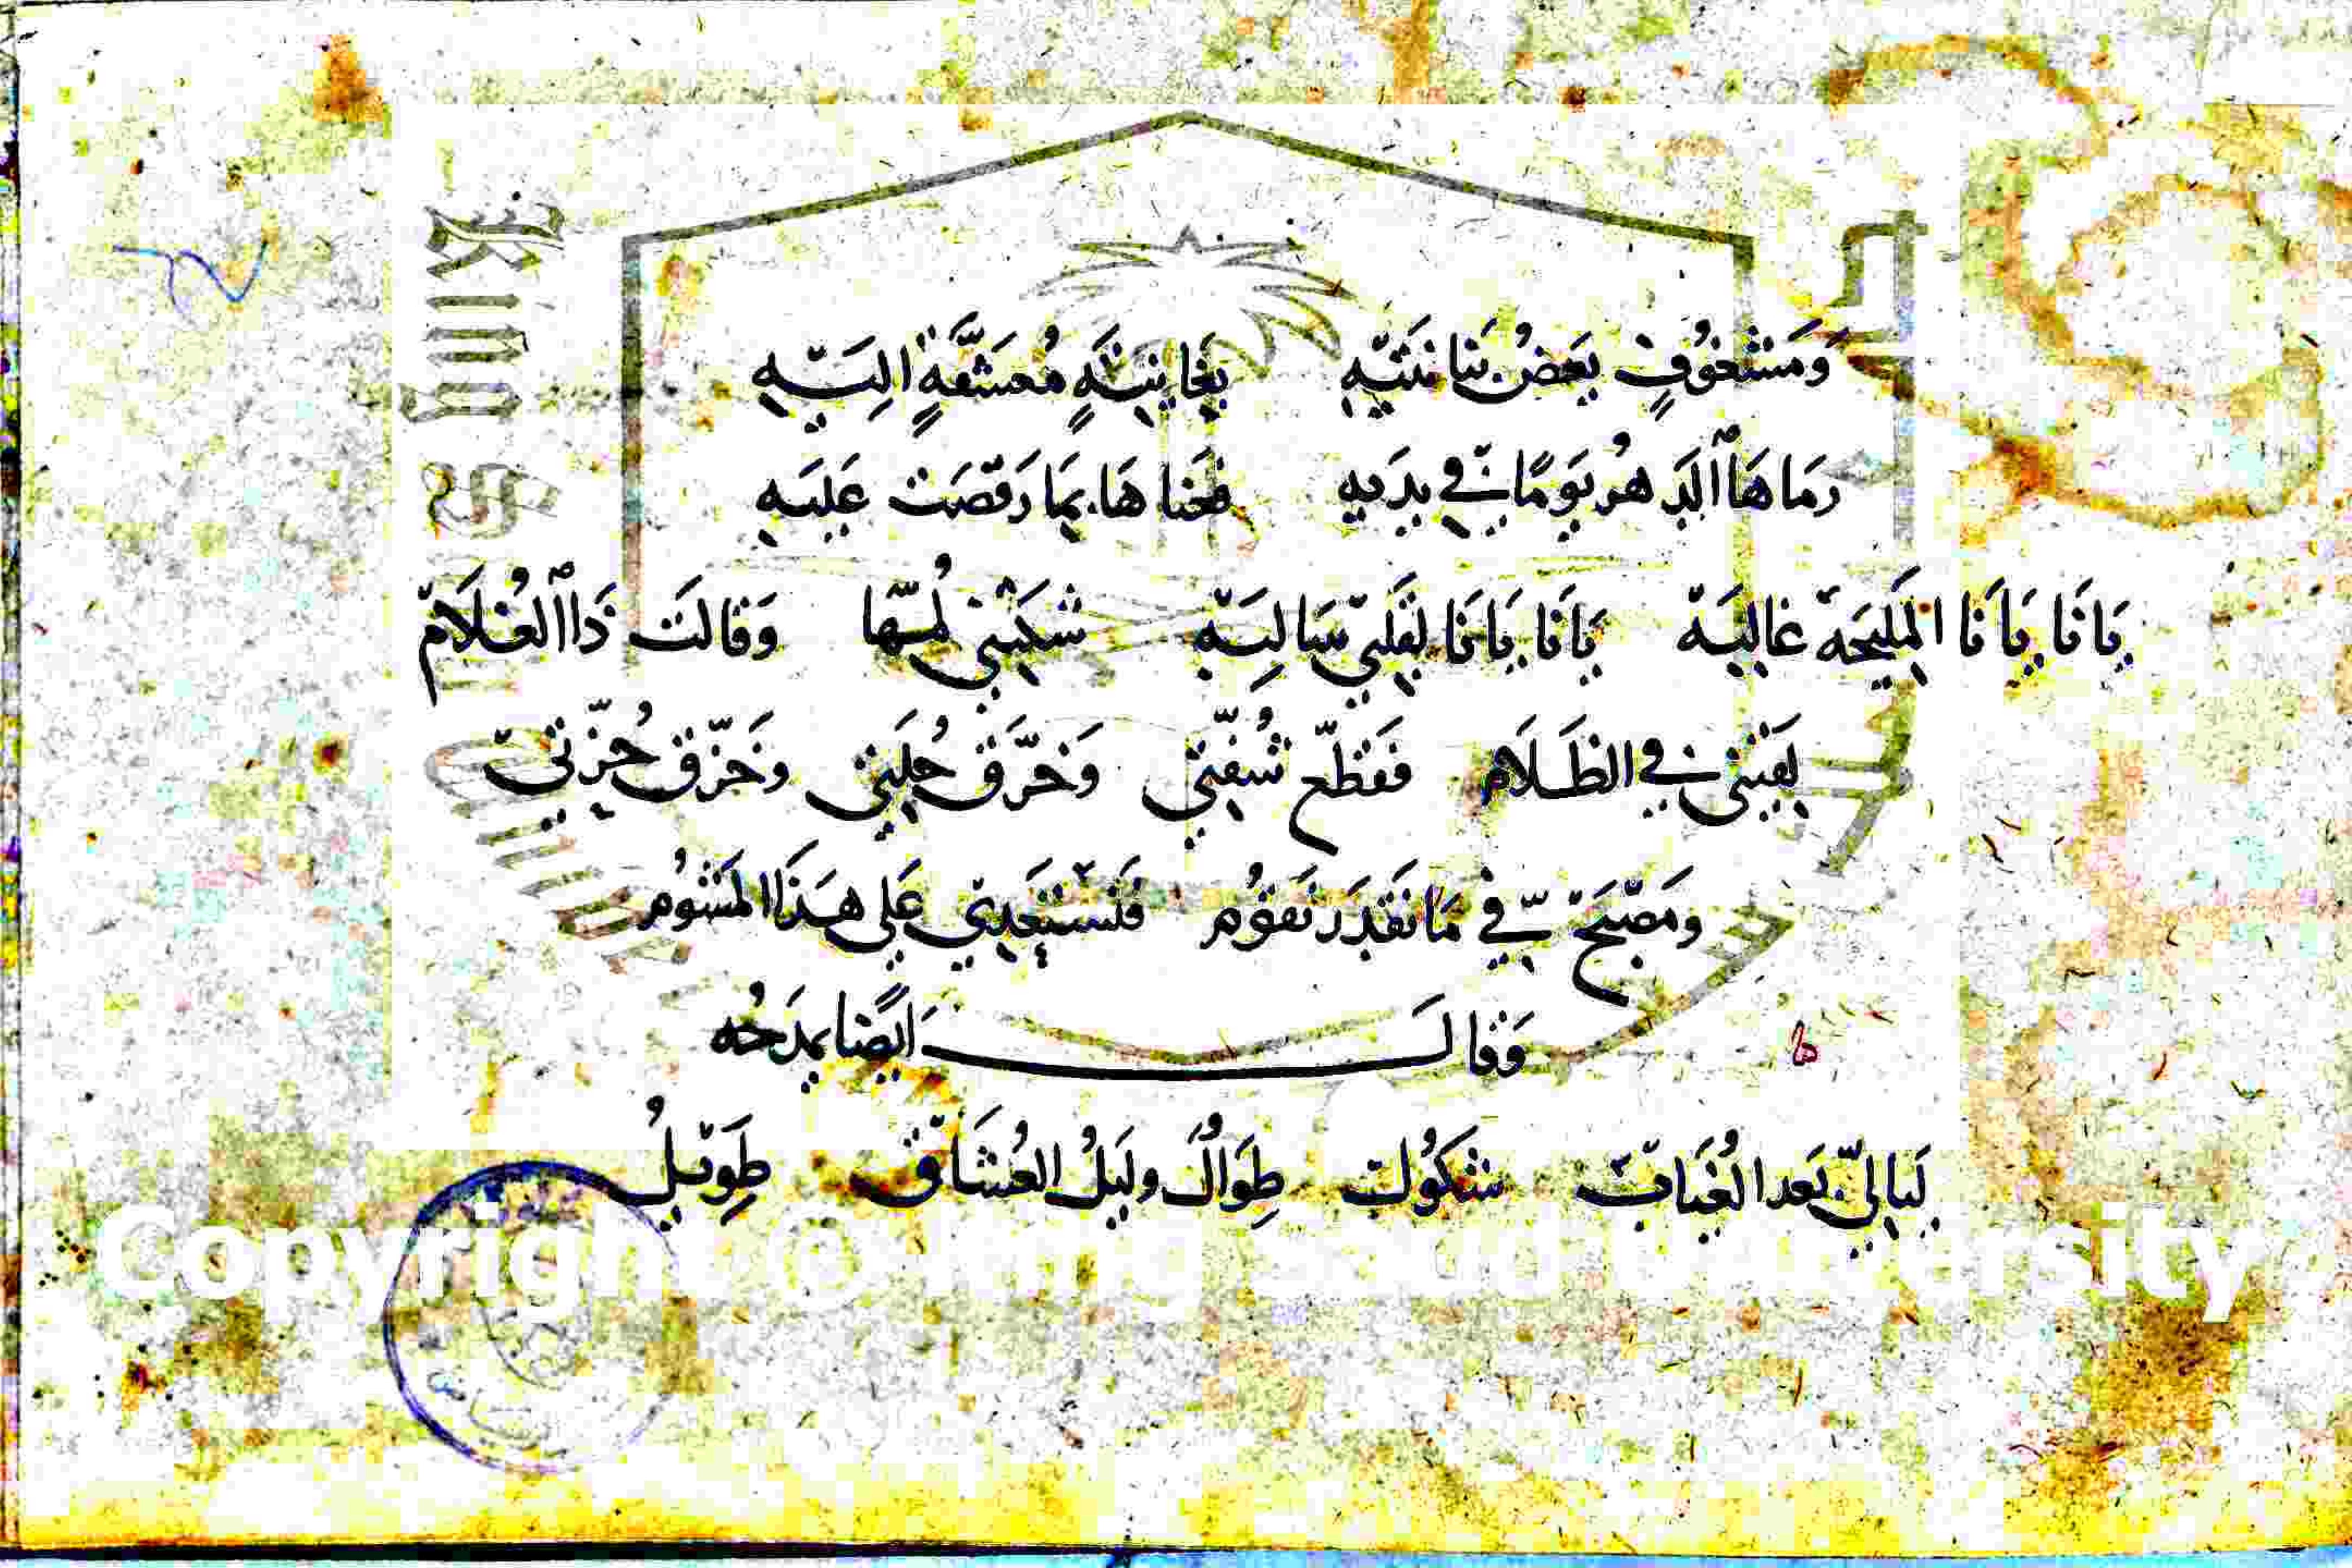 وَمَشْغُوفٍ بَعْضُ بَنَانَتَيْهِ بِغَانِيَةٍ مُعَشَّقَةٍ اِلَيْهِ
رَمَاهَا الدَّهْرُ يَوْمًا فِي يَدَيْهِ فَخَنَاهَا بِمَا رَقَصَتْ عَلَيْهِ
يَانَا يَانَا الْمَلِيحَهْ غَالِيَهْ يَانَا يَانَا لِقَلْبِي سَالِيَهْ شَكَتْنِي لُمّهَا وَقَالَتْ ذَا الْغُلَامْ
لَقِيتْنِي فِي الظَّلَامْ فَقَطّع شُفّتِي وَخَرَّقْ حُلَّتِي وخَزّقْ حُزّتِي
ومَصْبَحْ فِي مَا نَقْدَرْ نَقُوم فَنَسْتَعْدِي عَلَى هَذَا الْمَشُوم
وَقَالَ اَيْضًا يَمْدَحُه
لَيَالِيّ بَعد الْغُيَابْ شكُولْ طِوَالٌ ولَيْلُ الْعُشَّاقْ طَوِيلُ
Copyright © King Saud University